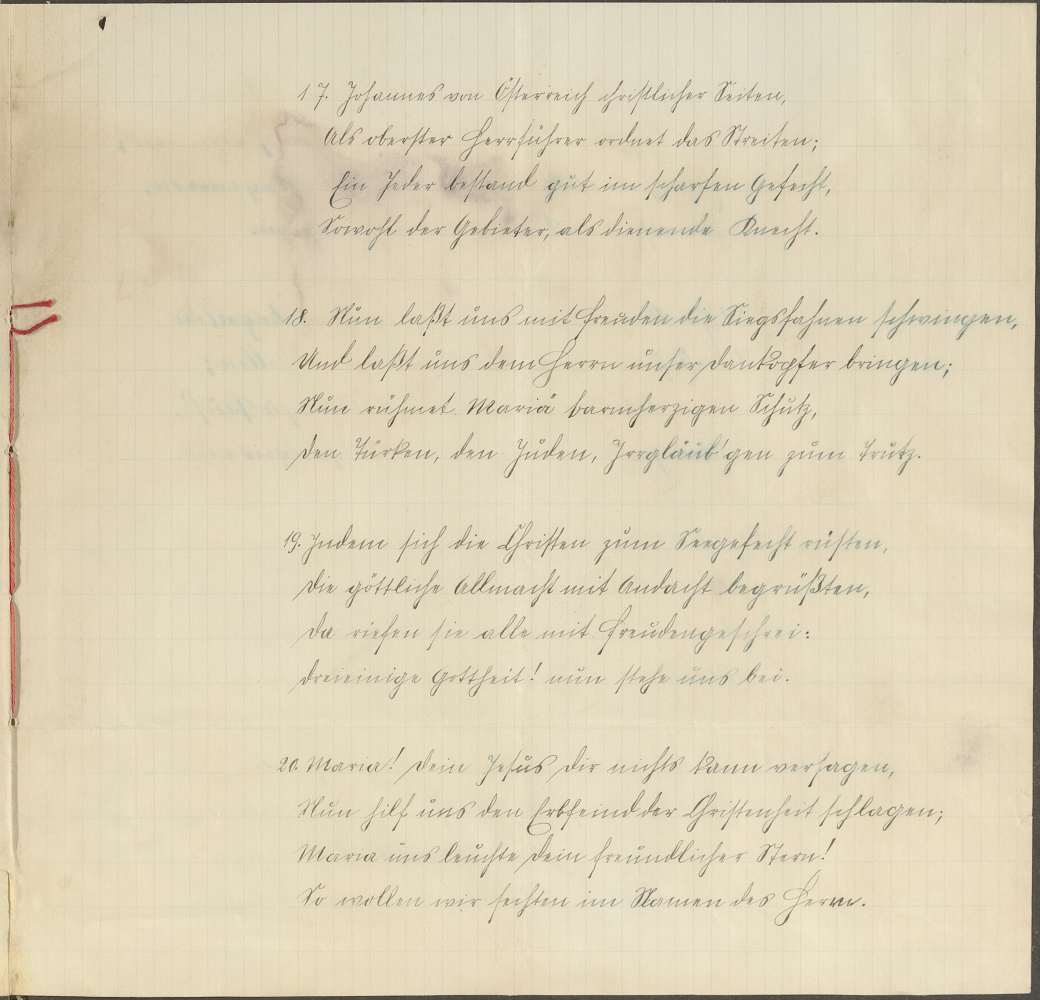 17. Johannes von Österreich christlicher Seiten,
Als oberster Heerführer ordnet das Streiten;
Ein Jeder bestand gut im scharfen Gefecht,
Sowohl der Gebieter, als dienende Knecht.
18. Nun laßt uns mit Freuden die Siegsfahnen schwingen,
Und laßt uns dem Herrn unser Dankopfer bringen;
Nun rühmet Mariä barmherzigen Schutz,
Den Türken, den Juden, Irrgläub'gen zum Trutz.
19. Indem sich die Christen zum Seegefecht rüsten,
Die göttliche Allmacht mit Andacht begrüßten,
Da riefen sie alle mit Freudengeschrei:
Dreieinige Gottheit! nun stehe uns bei.
20. Maria! Dein Jesus Dir nichts kann versagen,
Nun hilf uns den Erbfeind der Christenheit schlagen;
Maria uns leuchte Dein freundlicher Stern!
So wollen wir fechten im Namen des Herrn.